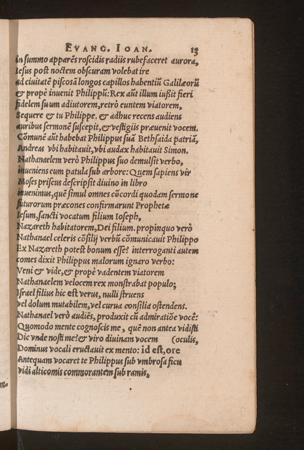 EVANG. IOAN. 13
in summo apparẽs roscidis radiis rubefaceret aurora,
Iesus post noctem obscuram volebat ire
ad ciuitatẽ piscosã longos capillos habentiũ Galilæorũ
& propè inuenit Philippũ: Rex aũt illum iußit fieri
fidelem suum adiutorem, retrò euntem viatorem,
Sequere & tu Philippe. & adhuc recens audiens
auribus sermonẽ suscepit, & vestigiis præuenit vocem.
Cõmunẽ aũt habebat Philippus suã Bethsaida patriã,
Andreas vbi habitauit, vbi audax habitauit Simon.
Nathanaelem verò Philippus suo demulsit verbo,
inueniens eum patula sub arbore: Quem sapiens vir
Moses priscus descripsit diuino in libro
inuenimus, què simul omnes cõcordi quodam sermone
futurorum præcones confirmarunt Prophetæ
Iesum, sancti vocatum filium Ioseph,
Nazareth habitatorem, Dei filium. propinquo verò
Nathanael celeris cõsilij verbũ cõmunicauit Philippo
Ex Nazareth potest bonum esse? interroganti autem
comes dixit Philippus malorum ignaro verbo:
Veni & vide, & propè vadentem viatorem
Nathanaelem velocem rex monstrabat populo;
Israel filius hic est verus, nulli struens
vel dolum mutabilem, vel curua consilia ostendens.
Nathanael verò audiẽs, produxit cũ admiratiõe vocẽ:
Quomodo mente cognoscis me, què non antea vidisti
Dic vnde nosti me? & viro diuinam vocem (oculis,
Dominus vocali eructauit ex mento: id est, ore
Antequam vocaret te Philippus sub vmbrosa ficu
vidi alticomis commorantem sub ramis,